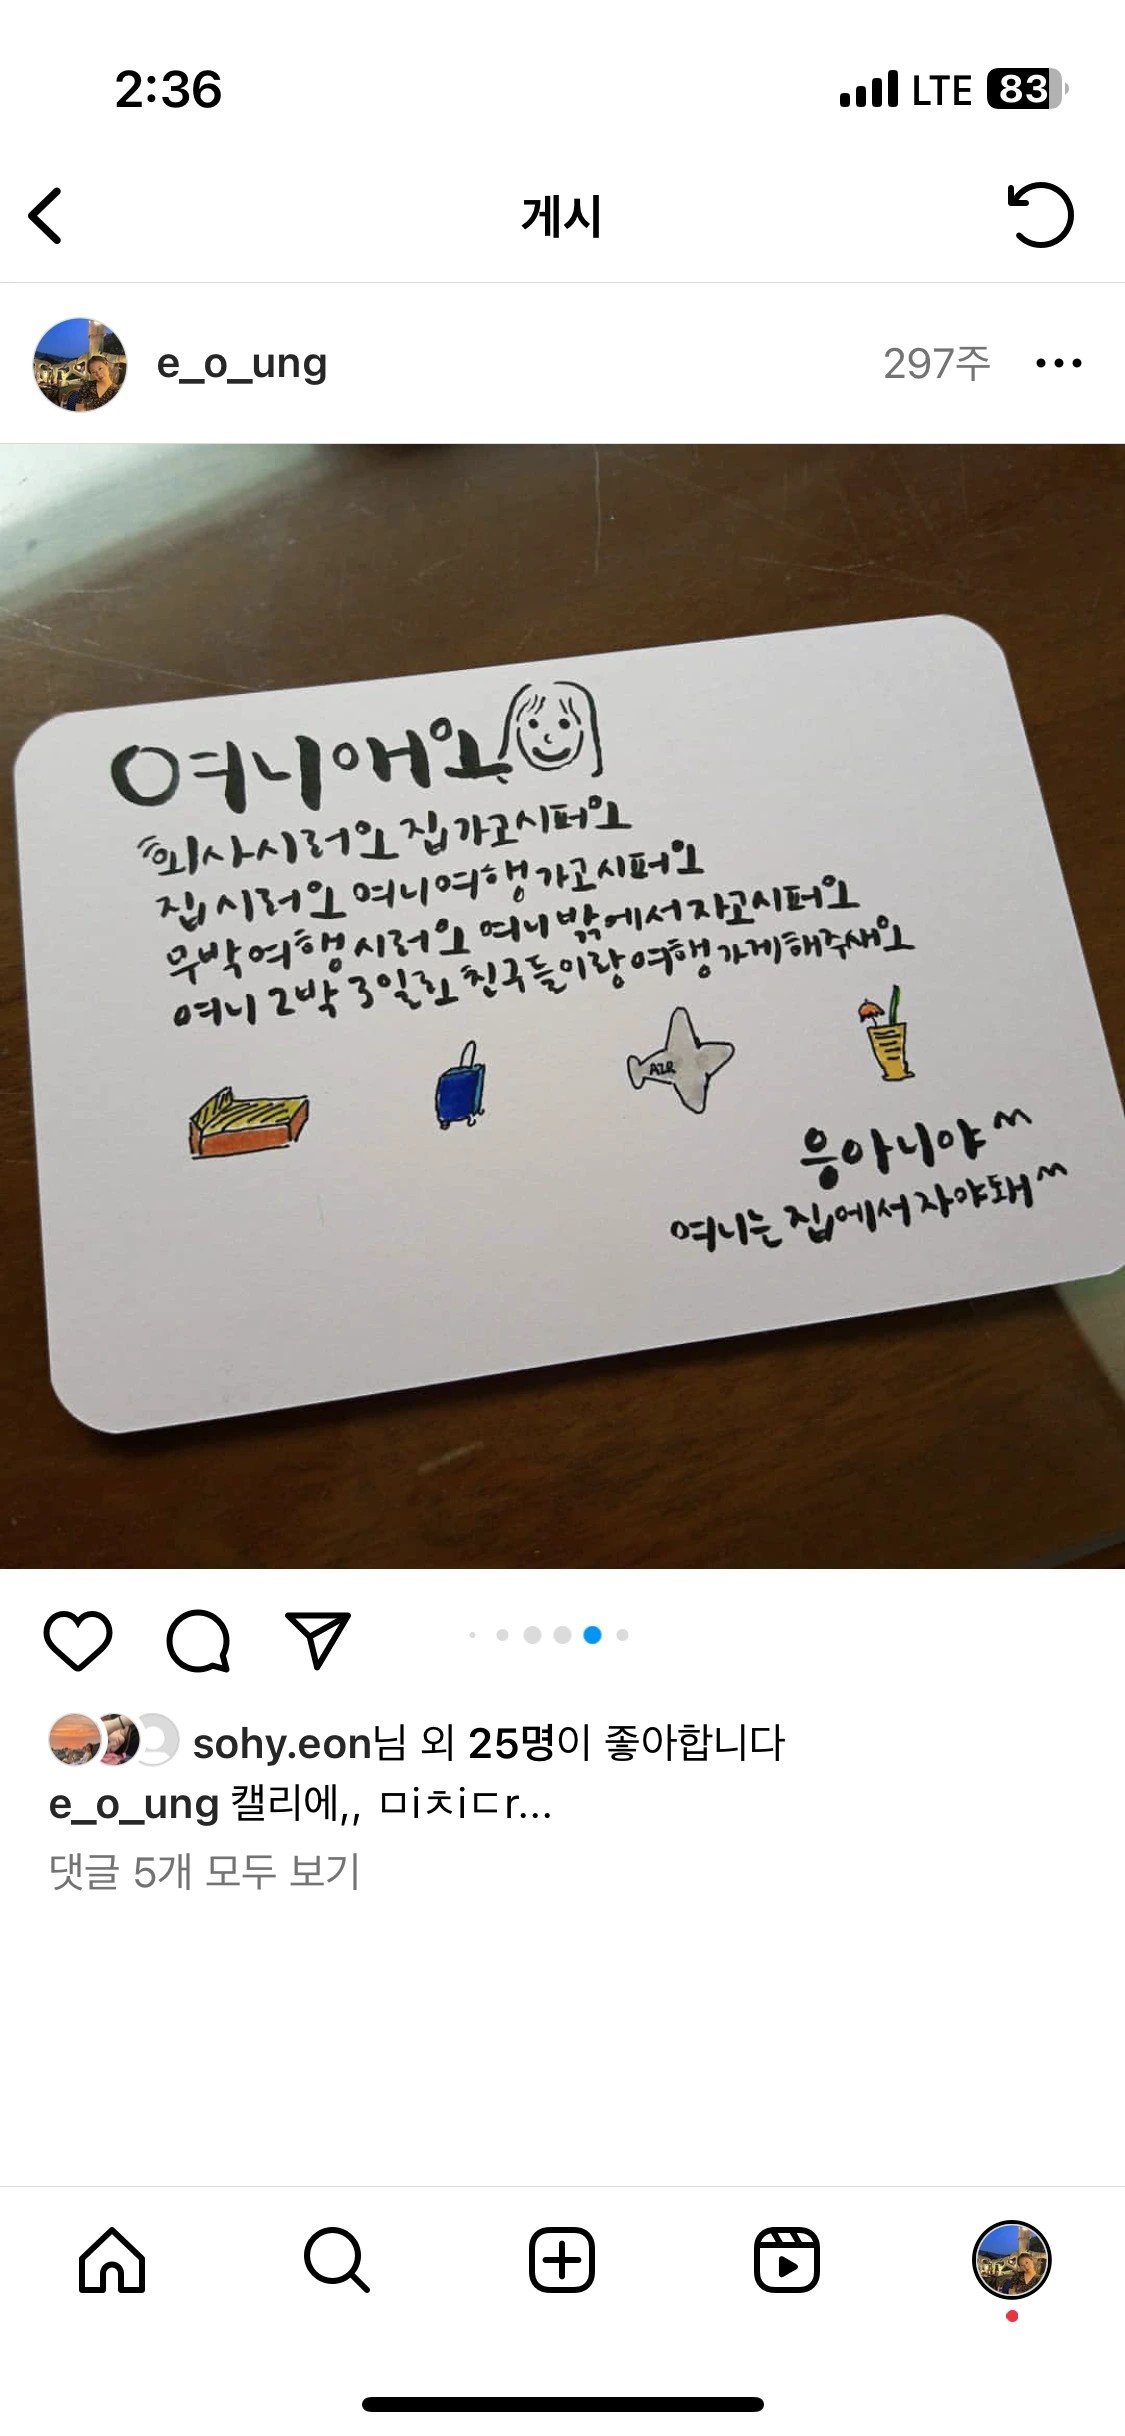 2:36
LTE 83
게시
e_o_ung
297주
여니애요
회사시러요 집가고시퍼요
집시러요 여니여행가고시퍼요
무박여행시러요 여니밖에서자고시퍼요
여니2박3일로친구들이랑여행가게해주새요
AIR
응아니야^^
여니는집에서자야돼^^
sohy.eon님 외 25명이 좋아합니다
e_o_ung 캘리에,, ㅁiㅊiㄷr...
댓글 5개 모두 보기